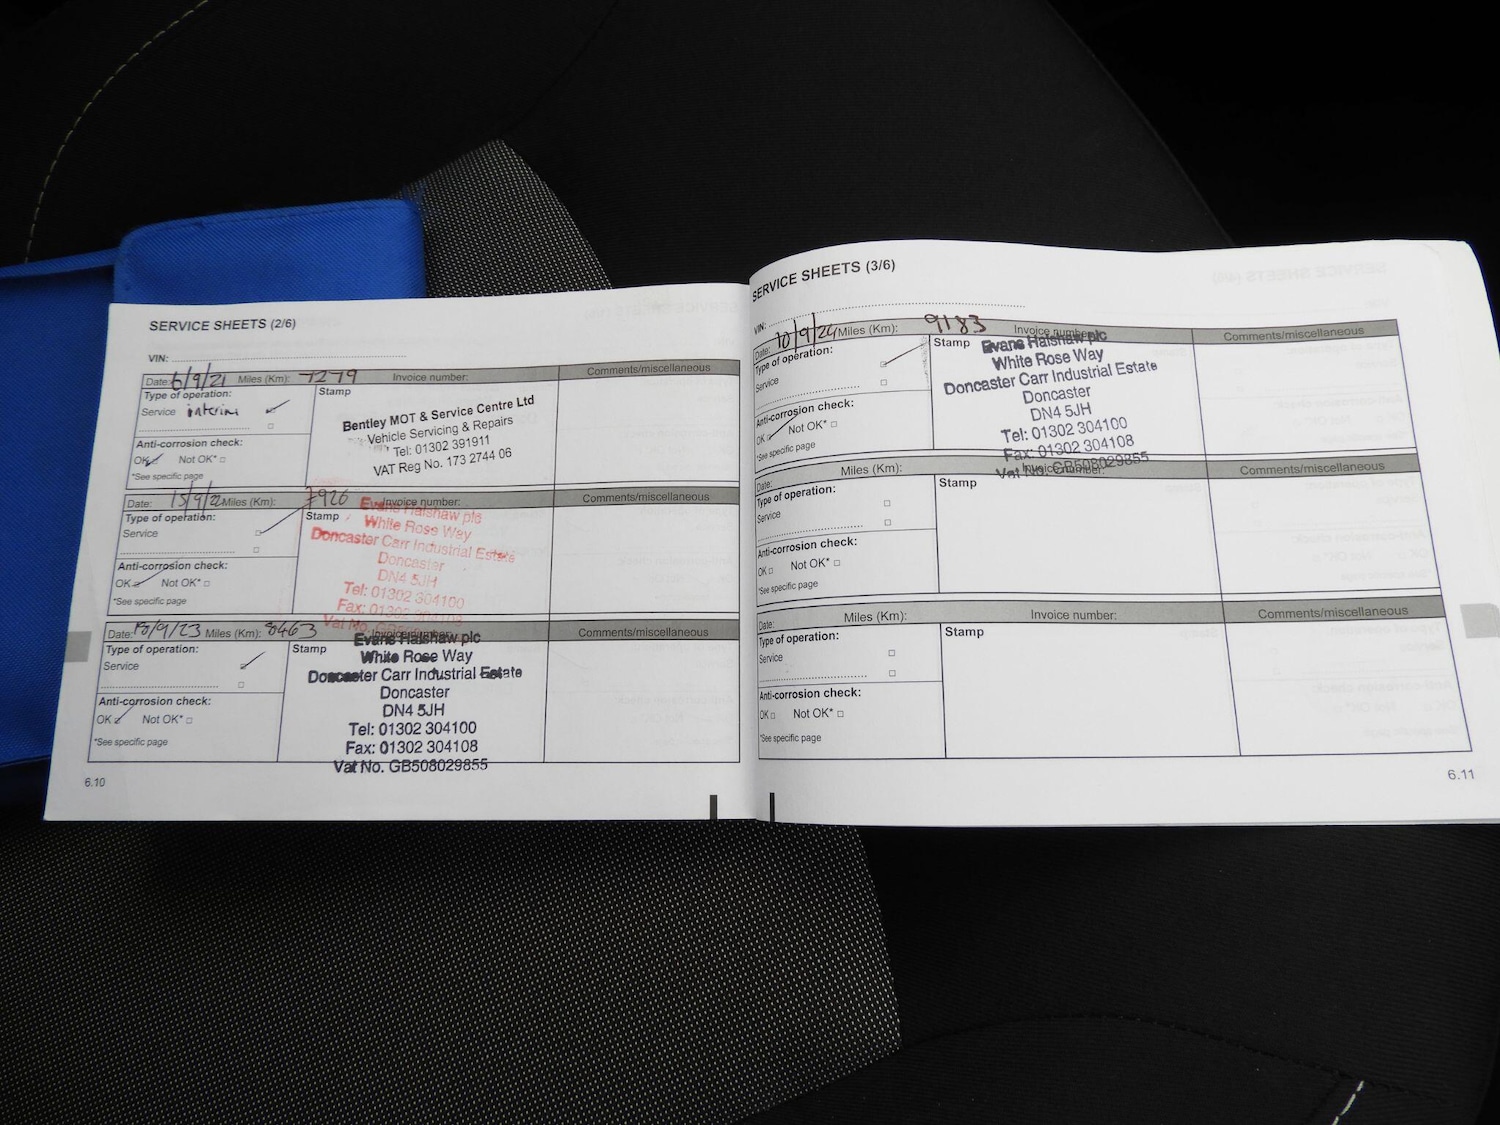 SERVICE SHEETS (2/6)
VIN:
Date: 6/9/21 Miles (Km): 7279 Invoice number: Comments/miscellaneous
Type of operation:
Service interim
Anti-corrosion check:
OK Not OK*
*See specific page
Stamp
Bentley MOT & Service Centre Ltd
Vehicle Servicing & Repairs
Tel: 01302 391911
VAT Reg No. 173 2744 06
Date: 15/9/22 Miles (Km): 7926 Invoice number: Comments/miscellaneous
Type of operation:
Service
Anti-corrosion check:
OK Not OK*
*See specific page
Stamp
Evans Halshaw plc
White Rose Way
Doncaster Carr Industrial Estate
Doncaster
DN4 5JH
Tel: 01302 304100
Fax: 01302 304108
Vat No.
Date: 13/9/23 Miles (Km): 8463 Invoice number: Comments/miscellaneous
Type of operation:
Service
Anti-corrosion check:
OK Not OK*
*See specific page
Stamp
Evans Halshaw plc
White Rose Way
Doncaster Carr Industrial Estate
Doncaster
DN4 5JH
Tel: 01302 304100
Fax: 01302 304108
Vat No. GB508029855
6.10
SERVICE SHEETS (3/6)
VIN:
Date: 10/9/24 Miles (Km): 9183 Invoice number: Comments/miscellaneous
Type of operation:
Service
Anti-corrosion check:
OK Not OK*
*See specific page
Stamp
Evans Halshaw plc
White Rose Way
Doncaster Carr Industrial Estate
Doncaster
DN4 5JH
Tel: 01302 304100
Fax: 01302 304108
Vat No. GB508029855
Date: Miles (Km): Invoice number: Comments/miscellaneous
Type of operation:
Service
Anti-corrosion check:
OK Not OK*
*See specific page
Stamp
Date: Miles (Km): Invoice number: Comments/miscellaneous
Type of operation:
Service
Anti-corrosion check:
OK Not OK*
*See specific page
Stamp
6.11